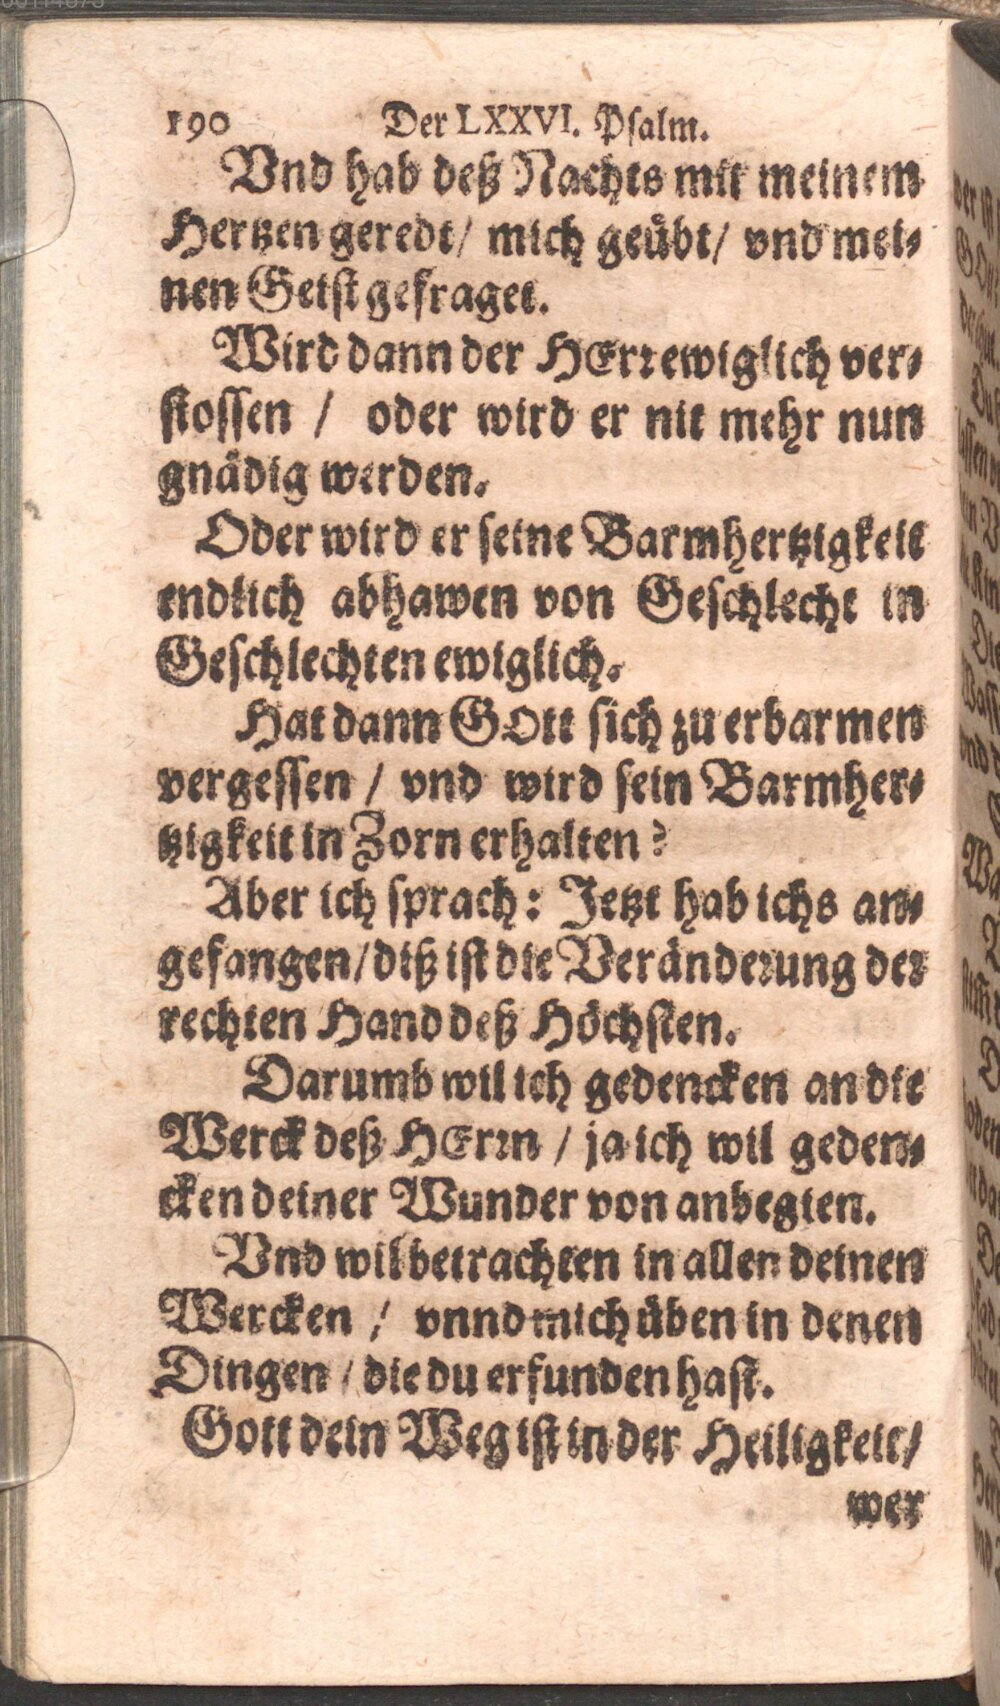 190 Der LXXVI. Psalm.
Vnd hab deß Nachts mit meinem
Hertzen geredt/ mich geübt/ vnd mei-
nen Geist gefraget.
Wird dann der HErr ewiglich ver-
stossen / oder wird er nit mehr nun
gnädig werden.
Oder wird er seine Barmhertzigkeit
endlich abhawen von Geschlecht in
Geschlechten ewiglich.
Hat dann GOtt sich zu erbarmen
vergessen / vnd wird sein Barmher-
tzigkeit in Zorn erhalten?
Aber ich sprach: Jetzt hab ichs an-
gefangen/ diß ist die Veränderung der
rechten Hand deß Höchsten.
Darumb wil ich gedencken an die
Werck deß HErrn / ja ich wil geden-
cken deiner Wunder von anbegien.
Vnd wil betrachten in allen deinen
Wercken / vnnd mich üben in denen
Dingen / die du erfunden hast.
Gott dein Weg ist in der Heiligkeit/
wer